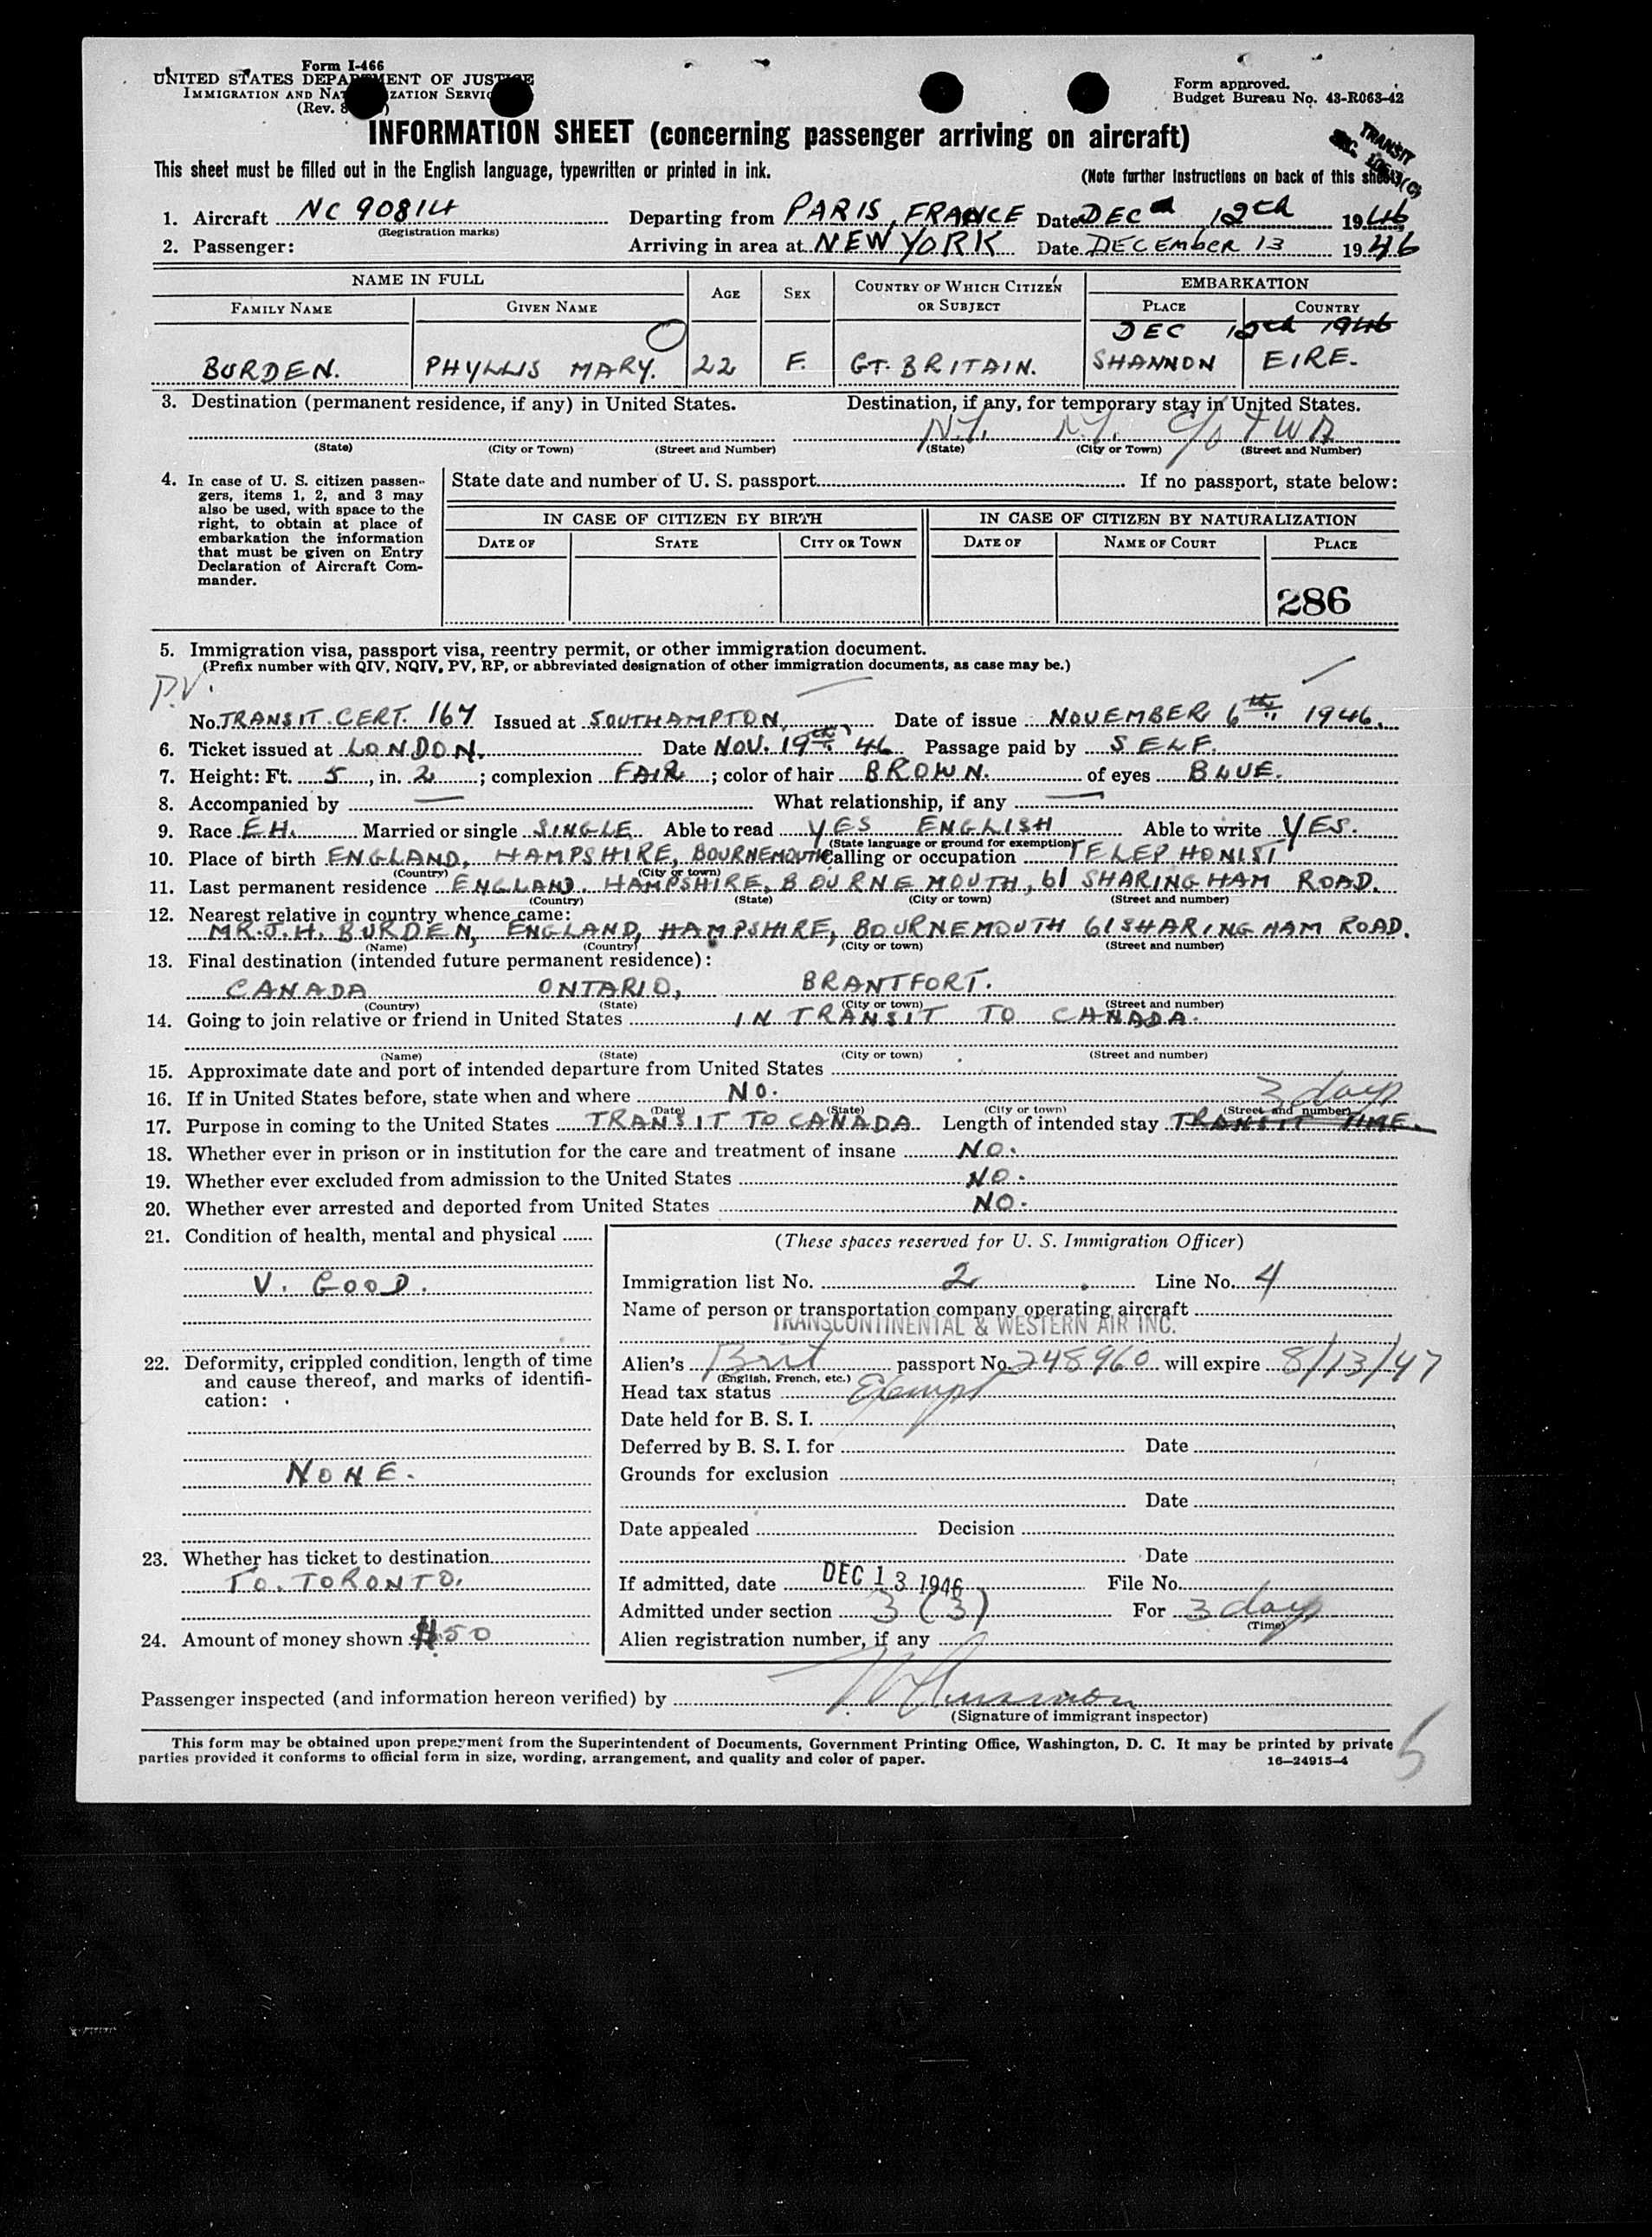 Form I-466
UNITED STATES DEPARTMENT OF JUSTICE
IMMIGRATION AND NATURALIZATION SERVICE
(Rev. 8
Form approved.
Budget Bureau No. 43-R063-42
INFORMATION SHEET (concerning passenger arriving on aircraft)
TRANSIT
This sheet must be filled out in the English language, typewritten or printed in ink.
(Note further instructions on back of this sheet.)
1. Aircraft NC 90814 Departing from PARIS, FRANCE Date DEC 12th 1946
(Registration marks)
2. Passenger: Arriving in area at NEW YORK Date DECEMBER 13 1946
NAME IN FULL AGE SEX COUNTRY OF WHICH CITIZEN OR SUBJECT EMBARKATION
FAMILY NAME GIVEN NAME PLACE COUNTRY
DEC 12th 1946
BURDEN. PHYLLIS MARY. 22 F. GT. BRITAIN. SHANNON EIRE.
3. Destination (permanent residence, if any) in United States. Destination, if any, for temporary stay in United States.
N.Y. N.Y. c/o TWA
(State) (City or Town) (Street and Number) (State) (City or Town) (Street and Number)
4. In case of U. S. citizen passengers, items 1, 2, and 3 may
also be used, with space to the
right, to obtain at place of
embarkation the information
that must be given on Entry
Declaration of Aircraft Commander.
State date and number of U. S. passport If no passport, state below:
IN CASE OF CITIZEN BY BIRTH IN CASE OF CITIZEN BY NATURALIZATION
DATE OF STATE CITY OR TOWN DATE OF NAME OF COURT PLACE
286
5. Immigration visa, passport visa, reentry permit, or other immigration document.
(Prefix number with QIV, NQIV, PV, RP, or abbreviated designation of other immigration documents, as case may be.)
P.V.
No. TRANSIT CERT. 167 Issued at SOUTHAMPTON, Date of issue NOVEMBER 6th. 1946.
6. Ticket issued at LONDON. Date NOV. 19th. 46 Passage paid by SELF.
7. Height: Ft. 5, in. 2; complexion FAIR; color of hair BROWN. of eyes BLUE.
8. Accompanied by — What relationship, if any —
9. Race EH. Married or single SINGLE Able to read YES ENGLISH Able to write YES.
(State language or ground for exemption)
10. Place of birth ENGLAND, HAMPSHIRE, BOURNEMOUTH Calling or occupation TELEPHONIST
(Country) (City or town)
11. Last permanent residence ENGLAND. HAMPSHIRE, BOURNEMOUTH, 61 SHARINGHAM ROAD.
(Country) (State) (City or town) (Street and number)
12. Nearest relative in country whence came:
MR. J. H. BURDEN, ENGLAND, HAMPSHIRE, BOURNEMOUTH 61 SHARINGHAM ROAD.
(Name) (Country) (City or town) (Street and number)
13. Final destination (intended future permanent residence):
CANADA ONTARIO, BRANTFORT.
(Country) (State) (City or town) (Street and number)
14. Going to join relative or friend in United States IN TRANSIT TO CANADA.
(Name) (State) (City or town) (Street and number)
15. Approximate date and port of intended departure from United States
16. If in United States before, state when and where NO. 3 days
(Date) (State) (City or town) (Street and number)
17. Purpose in coming to the United States TRANSIT TO CANADA. Length of intended stay TRANSIT TIME.
18. Whether ever in prison or in institution for the care and treatment of insane NO.
19. Whether ever excluded from admission to the United States NO.
20. Whether ever arrested and deported from United States NO.
21. Condition of health, mental and physical
V. GOOD.
22. Deformity, crippled condition, length of time
and cause thereof, and marks of identification:
NONE.
23. Whether has ticket to destination
TO. TORONTO.
24. Amount of money shown $50
(These spaces reserved for U. S. Immigration Officer)
Immigration list No. 2 Line No. 4
Name of person or transportation company operating aircraft
TRANSCONTINENTAL & WESTERN AIR INC.
Alien's Brit passport No. 248960 will expire 8/13/47
(English, French, etc.)
Head tax status Exempt
Date held for B. S. I.
Deferred by B. S. I. for Date
Grounds for exclusion
Date
Date appealed Decision
Date
If admitted, date DEC 13 1946 File No.
Admitted under section 3 (3) For 3 days
(Time)
Alien registration number, if any
Passenger inspected (and information hereon verified) by
(Signature of immigrant inspector)
This form may be obtained upon prepayment from the Superintendent of Documents, Government Printing Office, Washington, D. C. It may be printed by private
parties provided it conforms to official form in size, wording, arrangement, and quality and color of paper.
16—24915-4